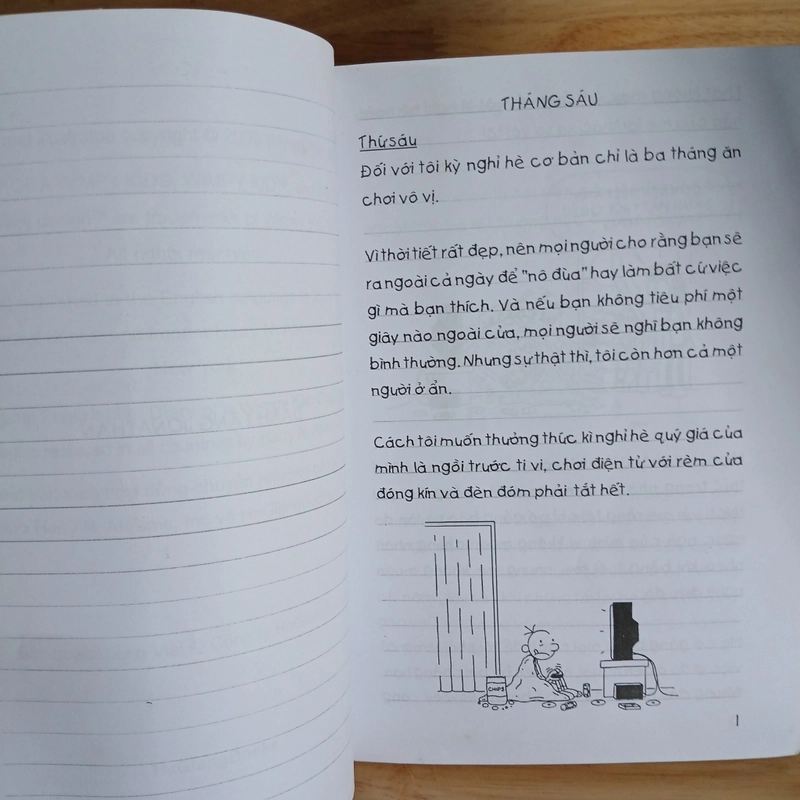 THÁNG SÁU
Thứ sáu
Đối với tôi kỳ nghỉ hè cơ bản chỉ là ba tháng ăn
chơi vô vị.
Vì thời tiết rất đẹp, nên mọi người cho rằng bạn sẽ
ra ngoài cả ngày để "nô đùa" hay làm bất cứ việc
gì mà bạn thích. Và nếu bạn không tiêu phí một
giây nào ngoài cửa, mọi người sẽ nghĩ bạn không
bình thường. Nhưng sự thật thì, tôi còn hơn cả một
người ở ẩn.
Cách tôi muốn thưởng thức kì nghỉ hè quý giá của
mình là ngồi trước ti vi, chơi điện tử với rèm cửa
đóng kín và đèn đóm phải tắt hết.
CHIPS
1